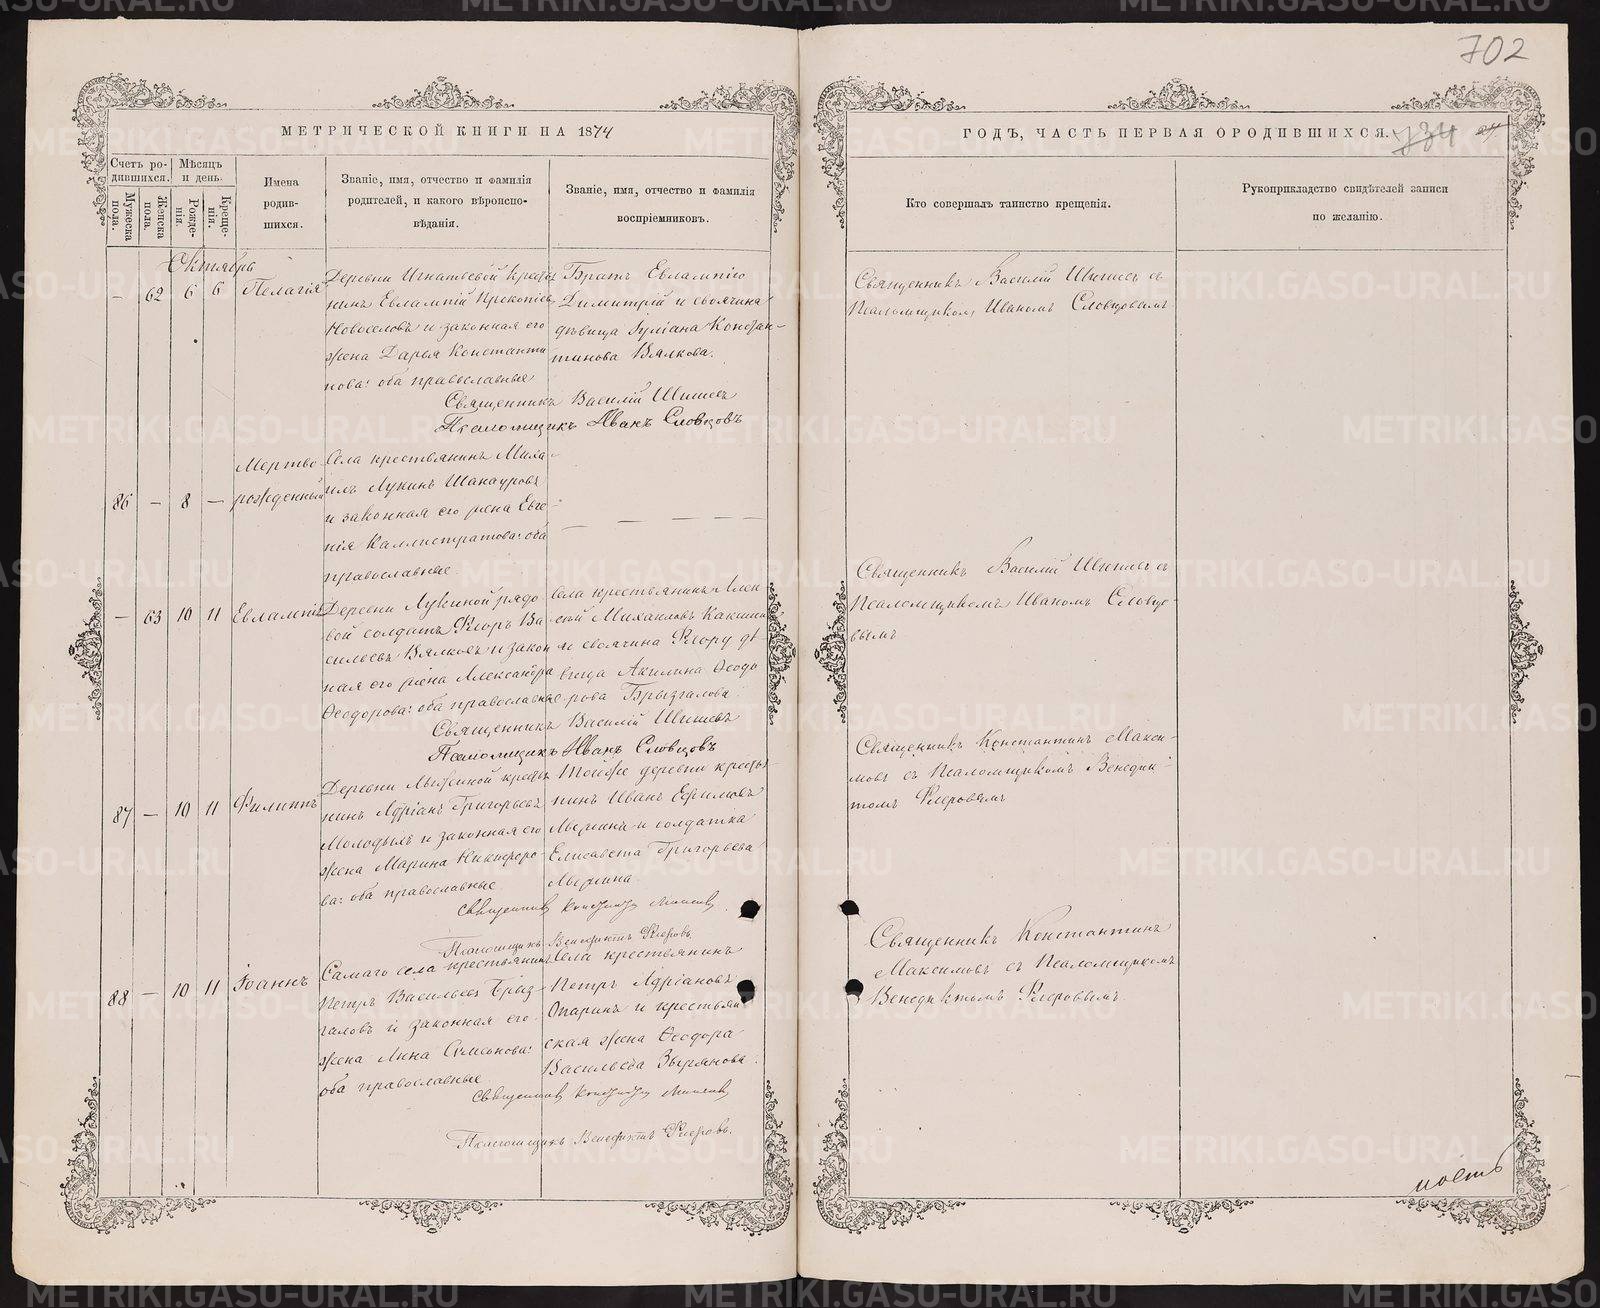 702
МЕТРИЧЕСКОЙ КНИГИ НА 1874
ГОДЪ, ЧАСТЬ ПЕРВАЯ О РОДИВШИХСЯ.
734
Счетъ ро-
дившихся.
Мѣсяцъ
и день.
Мужеска
пола.
Женска
пола.
Рожде-
нія.
Креще-
нія.
Имена
родив-
шихся.
Званіе, имя, отчество и фамилія
родителей, и какого вѣроиспо-
вѣданія.
Званіе, имя, отчество и фамилія
воспріемниковъ.
Кто совершалъ таинство крещенія.
Рукоприкладство свидѣтелей записи
по желанію.
Октябрь
— 62 6 6 Пелагія
Деревни Игнатьевой кресть
нинъ Евлампій Прокопіев
Новоселовъ и законная его
жена Дарья Константи
нова: оба православные
Братъ Евлампію
Димитрій и своячина
дѣвица Іуліана Констан-
тинова Вялкова.
Священникъ Василій Шишевъ
Псаломщикъ Иванъ Словцовъ
Священникъ Василій Шишевъ съ
Псаломщикомъ Иваномъ Словцовымъ
86 — 8 — Мертво
рожденный
Села крестьянинъ Миха-
илъ Лукинъ Шанауровъ
и законная его жена Евге-
нія Каллистратова: оба
православные
— — — —
— 63 10 11 Евлампія
Деревни Лукиной рядо
вой солдатъ Ѳеоръ Ва
сильевъ Вялковъ и закон
ная его жена Александра
Ѳеодорова: оба православные
Села крестьянинъ Алек
сѣй Михаиловъ
и своячина Ѳеору дѣ
вица Акилина Ѳеодо
рова Брызгалова.
Священникъ Василій Шишевъ
Псаломщикъ Иванъ Словцовъ
Священникъ Василій Шишевъ съ
Псаломщикомъ Иваномъ Словцо-
вымъ
87 — 10 11 Филиппъ
Деревни кресть
нинъ Адріанъ Григорьевъ
Молодыхъ и законная его
жена Марина Никифоро-
ва: оба православные
Тойже деревни крестья-
нинъ Иванъ Ефимовъ
и солдатка
Елисавета Григорьева
Священникъ Максимовъ
Псаломщикъ Венедиктъ Флеровъ
Священникъ Константинъ Макси-
мовъ съ Псаломщикомъ Венедик-
томъ Флеровымъ
88 — 10 11 Іоаннъ
Самаго села крестьянинъ
Петръ Васильевъ Брыз-
галовъ и законная его
жена Анна Симеонова:
оба православные
Села крестьянинъ
Петръ Адріановъ
Опаринъ и крестьян
ская жена Ѳеодора
Васильева Зырянова.
Священникъ Максимовъ
Псаломщикъ Венедиктъ Флеровъ.
Священникъ Константинъ
Максимовъ съ Псаломщикомъ
Венедиктомъ Флеровымъ.
ность
METRIKI.GASO-URAL.RU